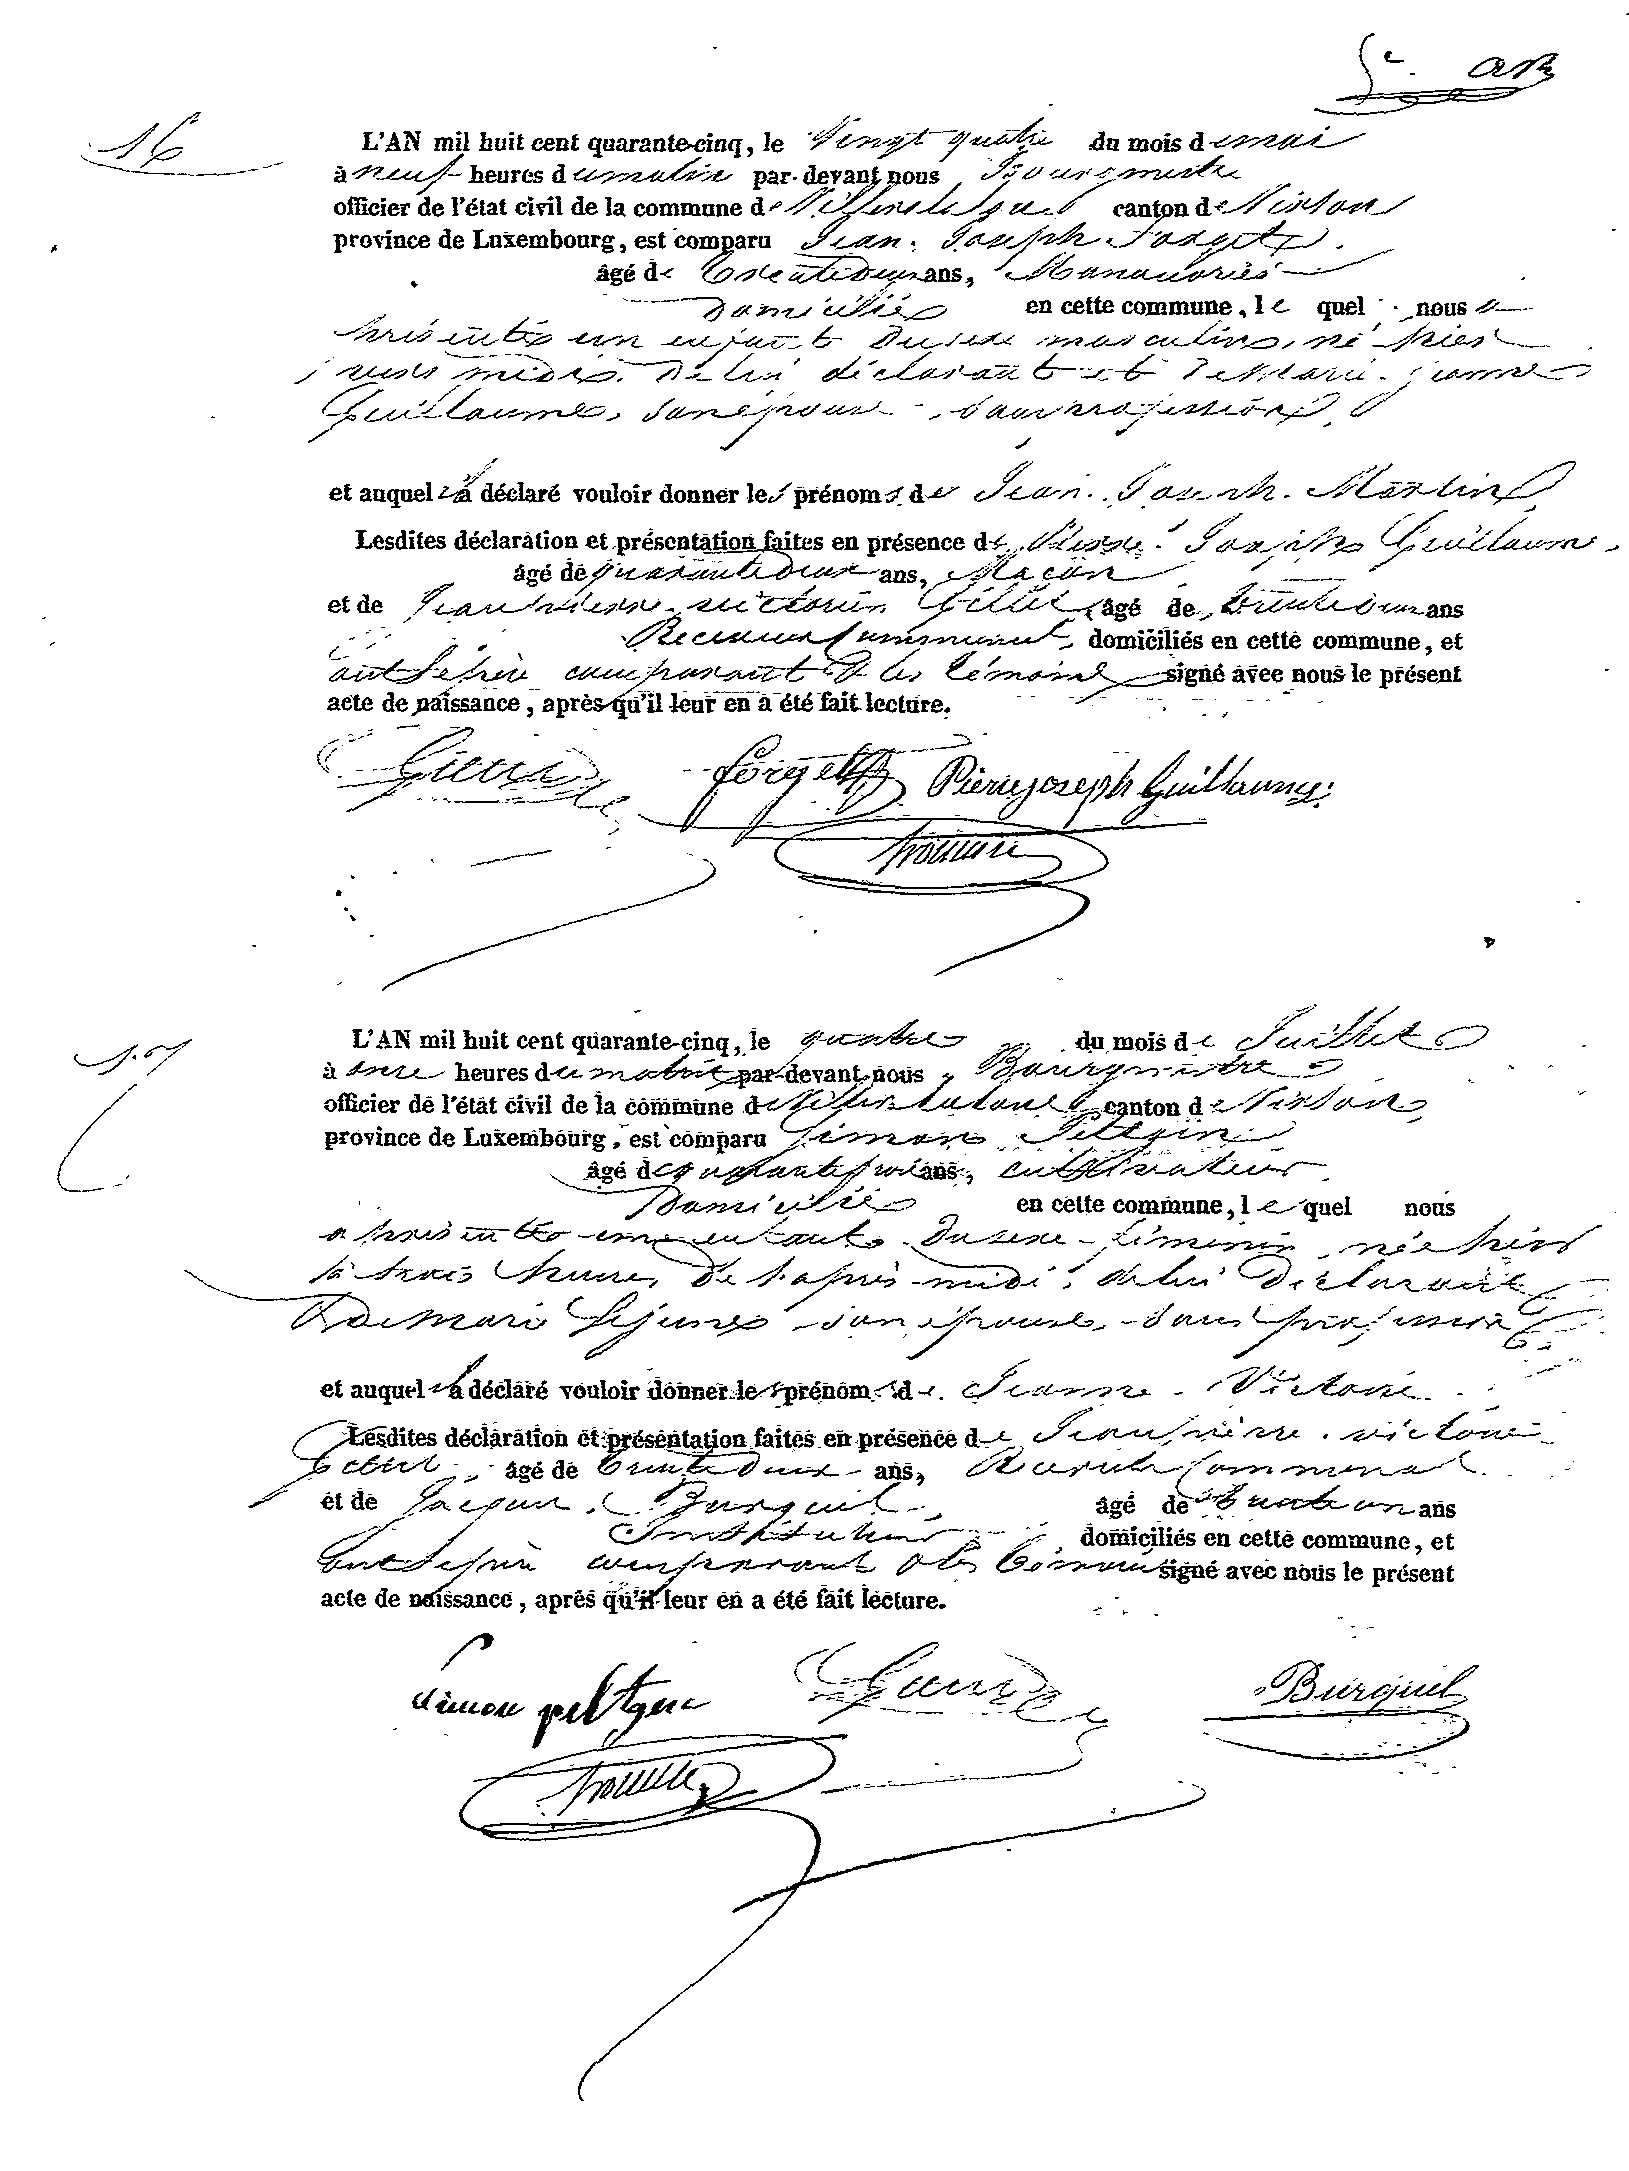 16
L'AN mil huit cent quarante-cinq, le Vingt quatre du mois de mai
à neuf heures du matin par-devant nous Bourgmestre
officier de l'état civil de la commune de canton de Virton
province de Luxembourg, est comparu Jean Joseph Forget
âgé de trente deux ans, Manauvrié
Domicilié en cette commune, le quel nous a
présenté un enfant Du sexe masculin, né hier
vers midi. De lui déclarant et De Marie jeanne
Guillaume, son épouse, sans profession,
et auquel il a déclaré vouloir donner les prénoms de Jean. Joseph. Martin
Lesdites déclaration et présentation faites en présence de Pierre Joseph Guillaume
âgé de quarante deux ans, Maçon
et de Jean pierre victorien âgé de trente deux ans
Receveur Communal, domiciliés en cette commune, et
ont le père comparant & les témoins signé avec nous le présent
acte de naissance, après qu'il leur en a été fait lecture.
forget Pierre joseph Guillaume
17
L'AN mil huit cent quarante-cinq, le quatre du mois de Juillet
à onze heures du matin par-devant nous Bourgmestre
officier de l'état civil de la commune de canton de Virton
province de Luxembourg, est comparu Simon Peltgin
âgé de ans, cultivateur
Domicilié en cette commune, le quel nous
a présenté une enfant Du sexe féminin, née hier
à trois heures De l'après-midi, de lui Déclarant
& de Marie Lejeune son épouse, sans profession
et auquel il a déclaré vouloir donner les prénoms de Jeanne. Victoire
Lesdites déclaration et présentation faites en présence de Jean pierre. victorien
âgé de trente deux ans, Receveur Communal
et de Jacques Burquel, âgé de trente un ans
Instituteur domiciliés en cette commune, et
ont le père comparant & les témoins signé avec nous le présent
acte de naissance, après qu'il leur en a été fait lecture.
simon peltgen Burquel